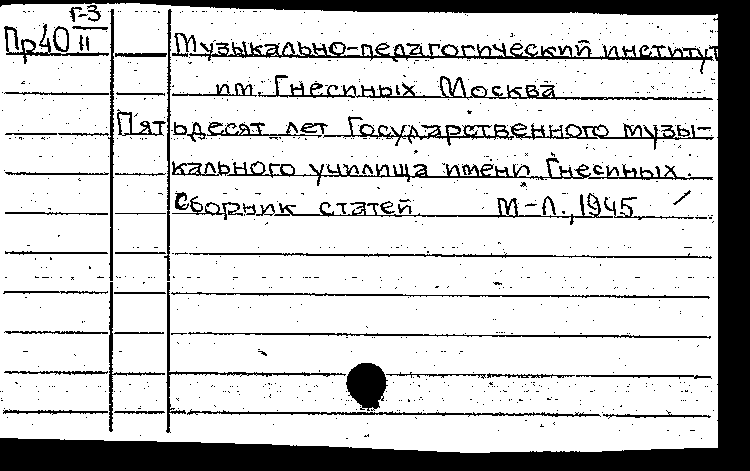 Г-3
Пр40 II Музыкально-педагогический институт
им. Гнесиных. Москва
Пятьдесят лет Государственного музы-
кального училища имени Гнесиных.
Сборник статей М-Л., 1945